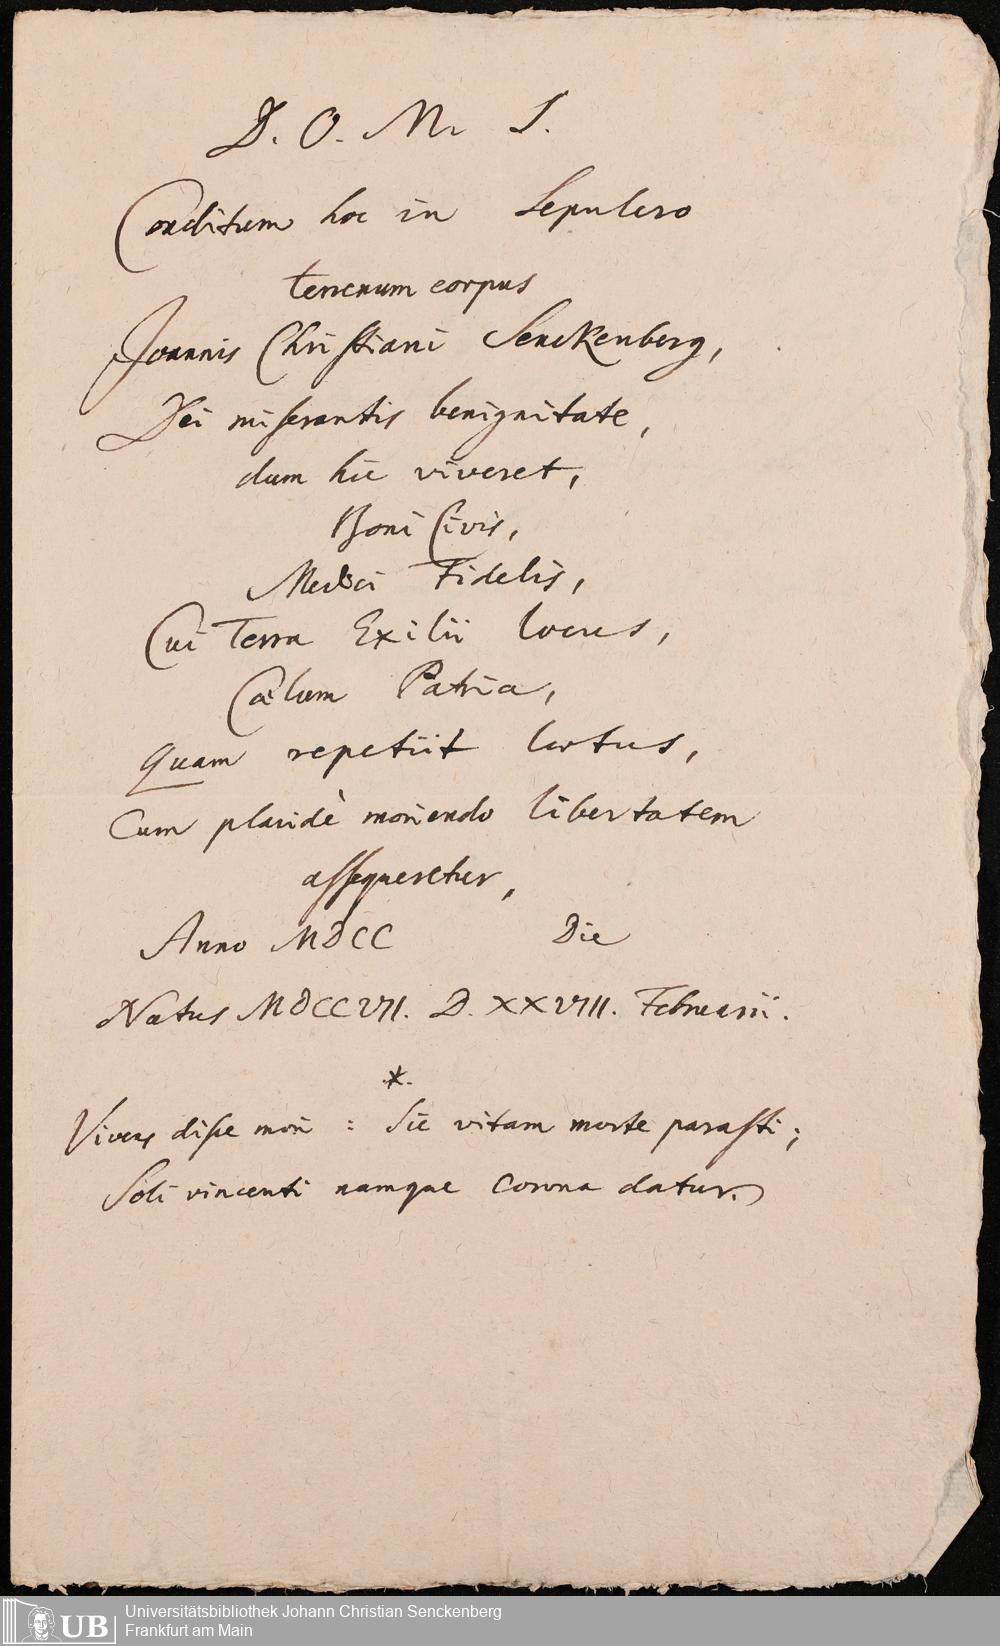 D. O. M. S.
Conditum hoc in Sepulcro
terrenum corpus
Joannis Christiani Senckenberg,
Dei miserantis benignitate,
dum hic viveret,
Boni Civis,
Medici Fidelis,
Cui Terra Exilii locus,
Cœlum Patria,
Quam repetiit lætus,
Cum placidè moriendo libertatem
assequeretur,
Anno MDCC Die
Natus MDCCVII. D. XXVIII. Februarii.
*.
Vivens disce mori : Sic vitam morte parasti;
Soli vincenti namque corona datur.
UB Universitätsbibliothek Johann Christian Senckenberg
Frankfurt am Main